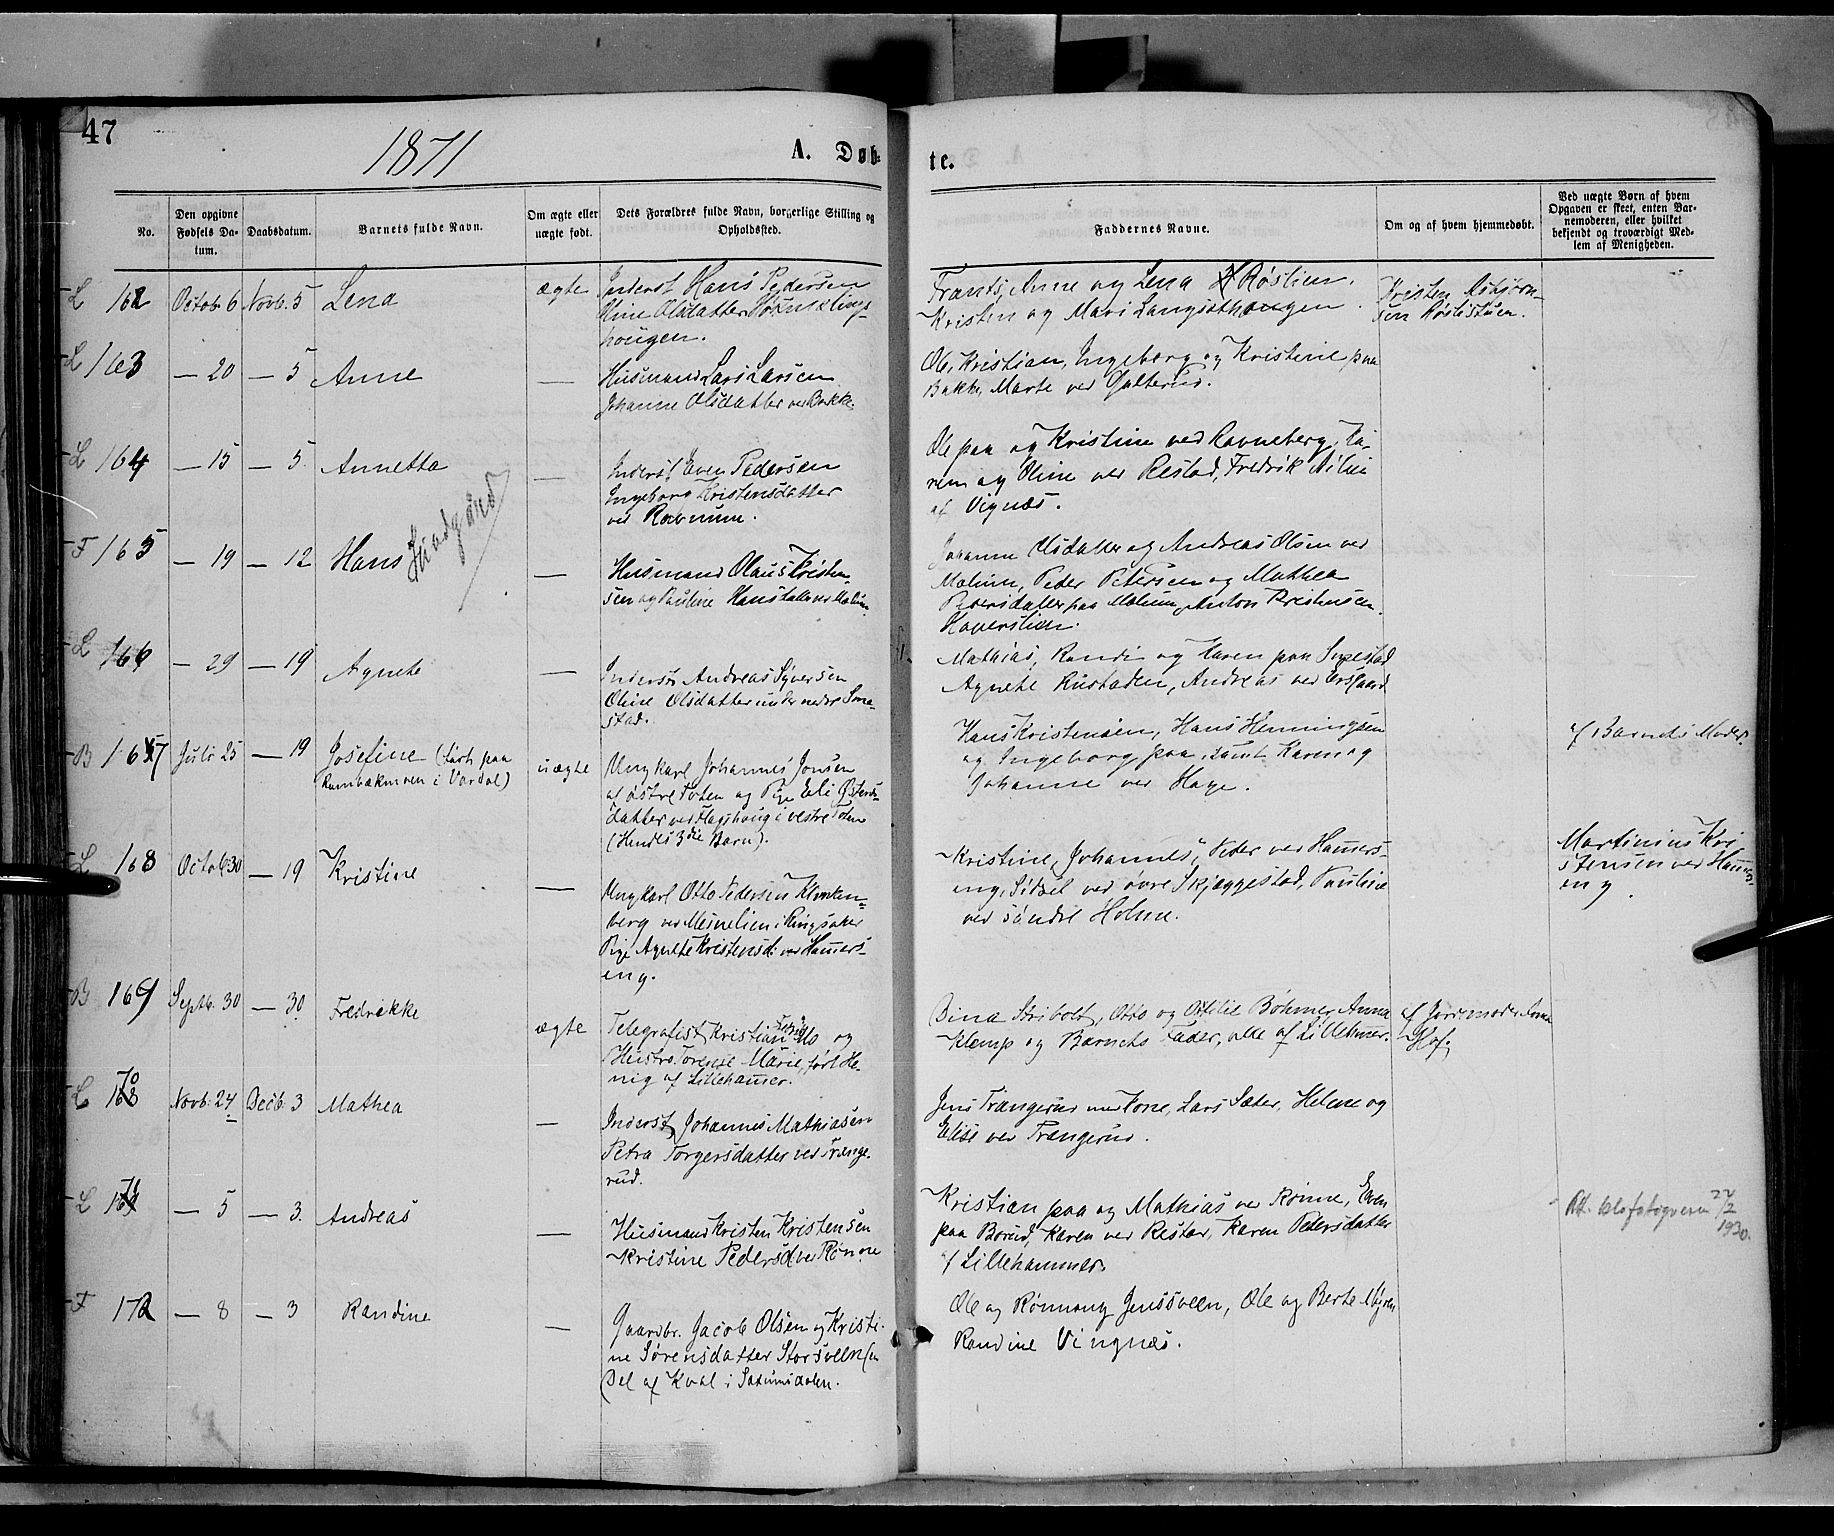 47
1871
A. Døb-
te.
No.
Den opgivne
Fødsels Da-
tum.
Daabsdatum.
Barnets fulde Navn.
Om ægte eller
uægte født.
Dets Forældres fulde Navn, borgerlige Stilling og
Opholdssted.
Faddernes Navne.
Om og af hvem hjemmedøbt.
Ved uægte Børn af hvem
Opgaven er skeet, enten Bar-
nemoderen, eller hvilket
bekjendt og troværdigt Med-
lem af Menigheden.
L 162 Octob. 6 Novb. 5 Lena ægte
Inderst Hans Pedersen
Oline Olsdatter
hougen.
Frants, Anne og Lena Røslien.
Kristen og Mari
Kristen
sen
L 163 — 20 — 5 Anne —
Husmand Lars Larsen
Johanne Olsdatter ved Bakke.
Ole, Kristian, Ingeborg og Kristine paa
Bakke, Marte ved
L 164 — 15 — 5 Annetta —
Inderst Even Pedersen
Ingeborg Kristensdatter
ved
Ole paa og Kristine ved Ravneberg, Ka-
ren og Oline ved Restad, Fredrik
af Vignæs.
F 165 — 19 — 12 Hans —
Husmand Olaus Kristen-
sen og Pauline Hansdatter ved
Johanne Olsdatter og Andreas Olsen ved
Peder Petersen og Mathea
Pedersdatter paa Anton Kristensen
L 166 — 29 — 19 Agnete —
Inderst Andreas Syversen
Oline Olsdatter under nedre
stad.
Mathias, Randi og Karen paa
Agnete Rustaden, Andreas ved
B 167 Juli 25 — 19 Josefine (født paa
i Vardal) uægte
Ungkarl Johannes Jonsen
af østre Toten og Pige Eli
datter ved Flagshoug i vestre Toten
(Hendes 3die Barn).
Hans Kristensen, Hans Henningsen
og Ingeborg paa, samt Karen og
Johanne ved Hage.
af Barnets Moder.
L 168 Octob. 30 — 19 Kristine —
Ungkarl Otto Pedersen Klinken-
berg ved Mesnelien i Ringsaker
Pige Agnete Kristensd. ved Hamers-
eng.
Kristine, Johannes, Peder ved Hamers-
eng, Sidsel ved øvre Skjæggestad, Pauline
ved søndre Holme.
Martinius Kri-
stensen ved Hamers-
eng.
B 169 Septb. 30 — 30 Fredrikke ægte
Telegrafist Kristian Mo og
Hustro Marie, født He-
nig af Lillehamer.
Dina Stribolt, Otto og Ottilie Bøhmer, Anna
Klemp og Barnets Fader, alle af Lillehmer.
af Jordemoder Anna
Hof.
L 170 Novb. 24 Decb. 3 Mathea —
Inderst Johannes Mathiasen
Petra Torgersdatter ved Trænge-
rud.
Jens Trængerud med Kone, Lars Sæter, Helene og
Elise ved Trængerud.
L 171 — 5 — 3 Andreas —
Husmand Kristen Kristensen
Kristine Pedersd. ved Rønne
Kristian paa og Mathias ved Rønne, Even
paa Børud, Karen ved Restad, Karen Pedersdatter
af Lillehammer.
22/2
1930.
F 172 — 8 — 3 Randine —
Gaardbr. Jacob Olsen og Kristi-
ne Sørensdatter Storsveen (en
Del af Kval i Saxumsdalen.
Ole og Rønnaug Jenssveen, Ole og Berte Myren
Randine Vingnæs.